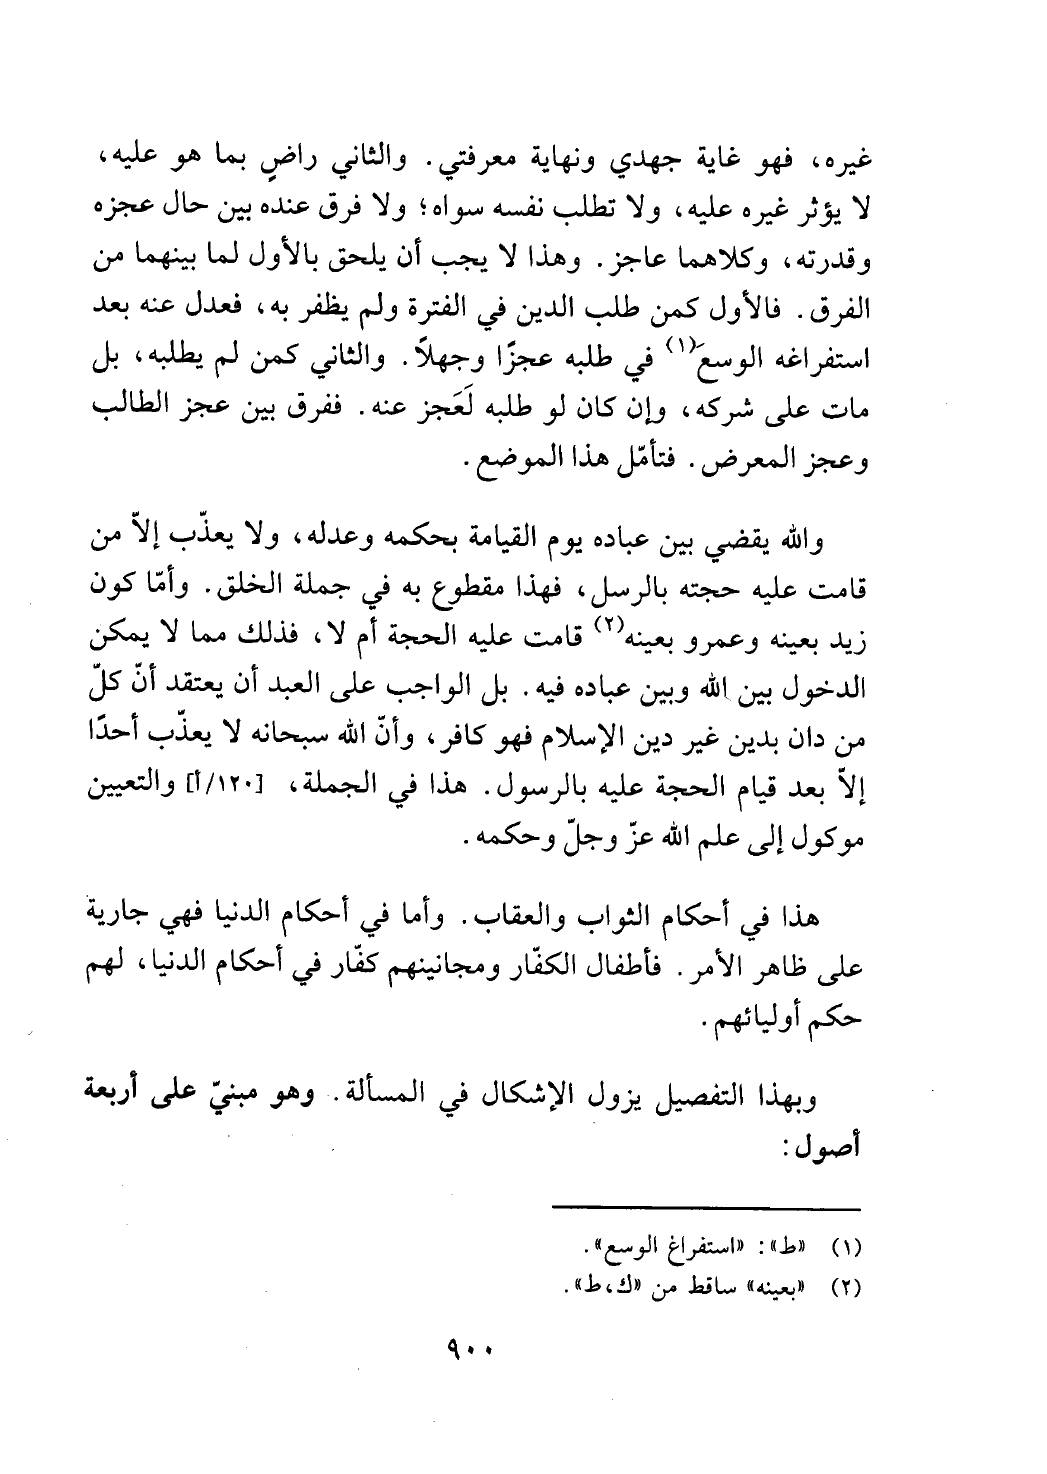 غيره، فهو غاية جهدي ونهاية معرفتي. والثاني راضٍ بما هو عليه،
لا يؤثر غيره عليه، ولا تطلب نفسه سواه؛ ولا فرق عنده بين حال عجزه
وقدرته، وكلاهما عاجز. وهذا لا يجب أن يلحق بالأول لما بينهما من
الفرق. فالأول كمن طلب الدين في الفترة ولم يظفر به، فعدل عنه بعد
استفراغه الوسعَ(١) في طلبه عجزًا وجهلاً. والثاني كمن لم يطلبه، بل
مات على شركه، وإن كان لو طلبه لَعَجز عنه. ففرق بين عجز الطالب
وعجز المعرض. فتأمّل هذا الموضع.
والله يقضي بين عباده يوم القيامة بحكمه وعدله، ولا يعذّب إلاّ من
قامت عليه حجته بالرسل، فهذا مقطوع به في جملة الخلق. وأمّا كون
زيد بعينه وعمرو بعينه(٢) قامت عليه الحجة أم لا، فذلك مما لا يمكن
الدخول بين الله وبين عباده فيه. بل الواجب على العبد أن يعتقد أنّ كلّ
من دان بدين غير دين الإسلام فهو كافر، وأنّ الله سبحانه لا يعذّب أحدًا
إلاّ بعد قيام الحجة عليه بالرسول. هذا في الجملة، [١٢٠/أ] والتعيين
موكول إلى علم الله عزّ وجلّ وحكمه.
هذا في أحكام الثواب والعقاب. وأما في أحكام الدنيا فهي جارية
على ظاهر الأمر. فأطفال الكفّار ومجانينهم كفّار في أحكام الدنيا، لهم
حكم أوليائهم.
وبهذا التفصيل يزول الإشكال في المسألة. وهو مبنيّ على أربعة
أصول:
(١) «ط»: «استفراغ الوسع».
(٢) «بعينه» ساقط من «ك، ط».
٩٠٠